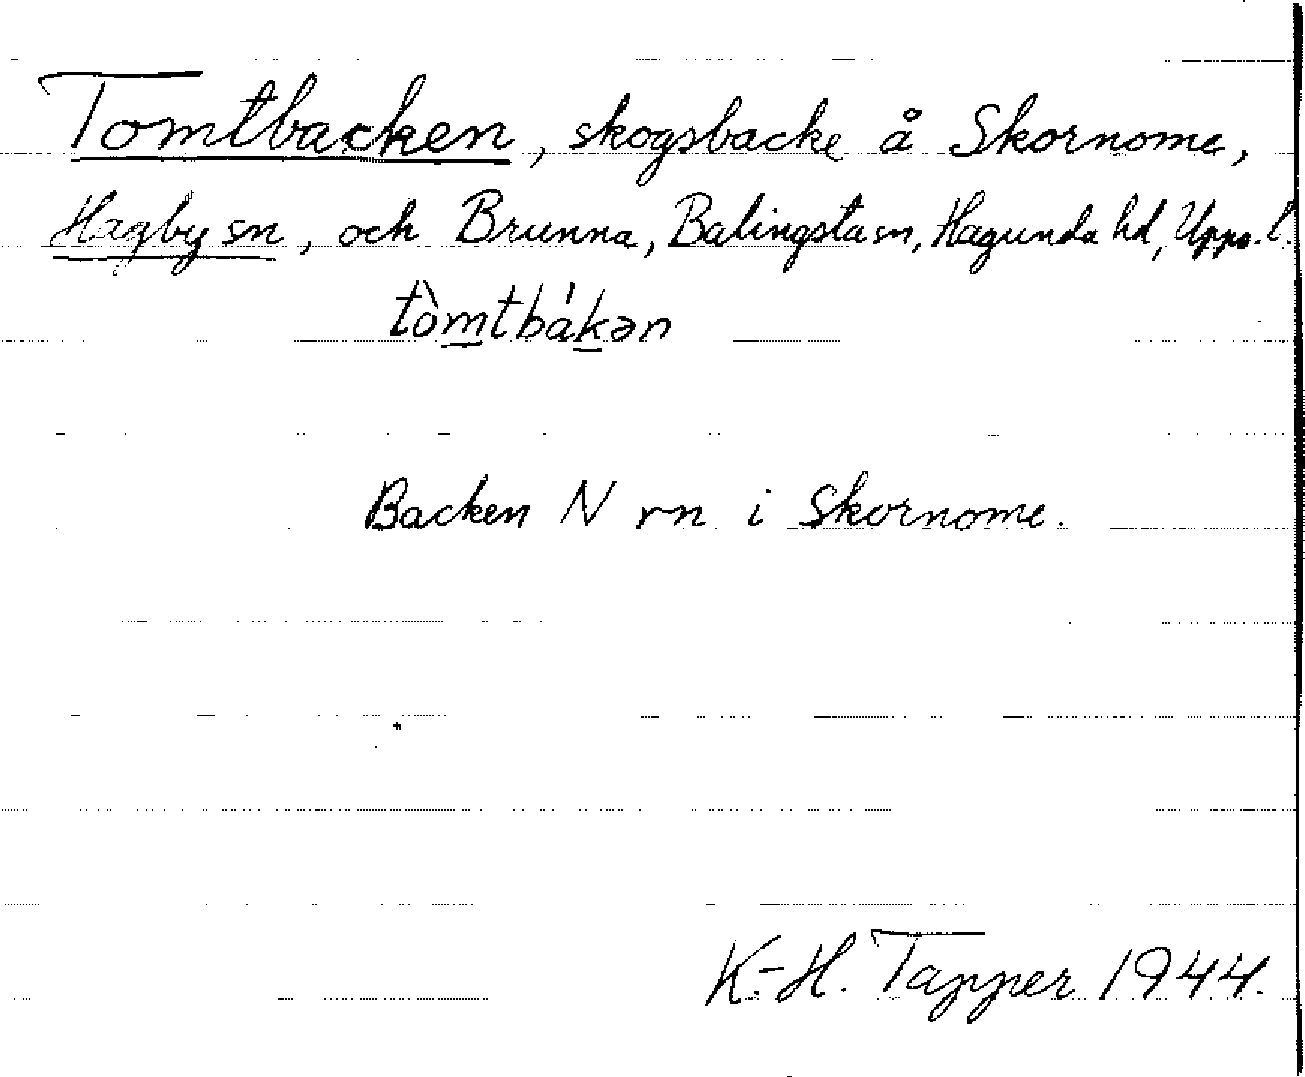 Tomtbacken, skogsbacke å Skornome,
Hagby sn, och Brunna, Balingsta sn, Hagunda hd, Upps. l.
tòmtbákən
Backen N rn i Skornome.
K.-H. Tapper 1944.